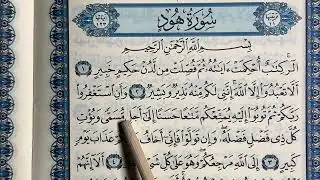 سُورَةُ هُودٍ
بِسْمِ اللَّهِ الرَّحْمَٰنِ الرَّحِيمِ
الٓر كِتَٰبٌ أُحْكِمَتْ ءَايَٰتُهُۥ ثُمَّ فُصِّلَتْ مِن لَّدُنْ حَكِيمٍ خَبِيرٍ ١
أَلَّا تَعْبُدُوٓا۟ إِلَّا ٱللَّهَ إِنَّنِى لَكُم مِّنْهُ نَذِيرٌ وَبَشِيرٌ ٢ وَأَنِ ٱسْتَغْفِرُوا۟
رَبَّكُمْ ثُمَّ تُوبُوٓا۟ إِلَيْهِ يُمَتِّعْكُم مَّتَٰعًا حَسَنًا إِلَىٰٓ أَجَلٍ مُّسَمًّى وَيُؤْتِ
كُلَّ ذِى فَضْلٍ فَضْلَهُۥ وَإِن تَوَلَّوْا۟ فَإِنِّىٓ أَخَافُ عَلَيْكُمْ عَذَابَ يَوْمٍ
كَبِيرٍ ٣ إِلَى ٱللَّهِ مَرْجِعُكُمْ وَهُوَ عَلَىٰ كُلِّ شَىْءٍ قَدِيرٌ ٤ أَلَآ إِنَّهُمْ